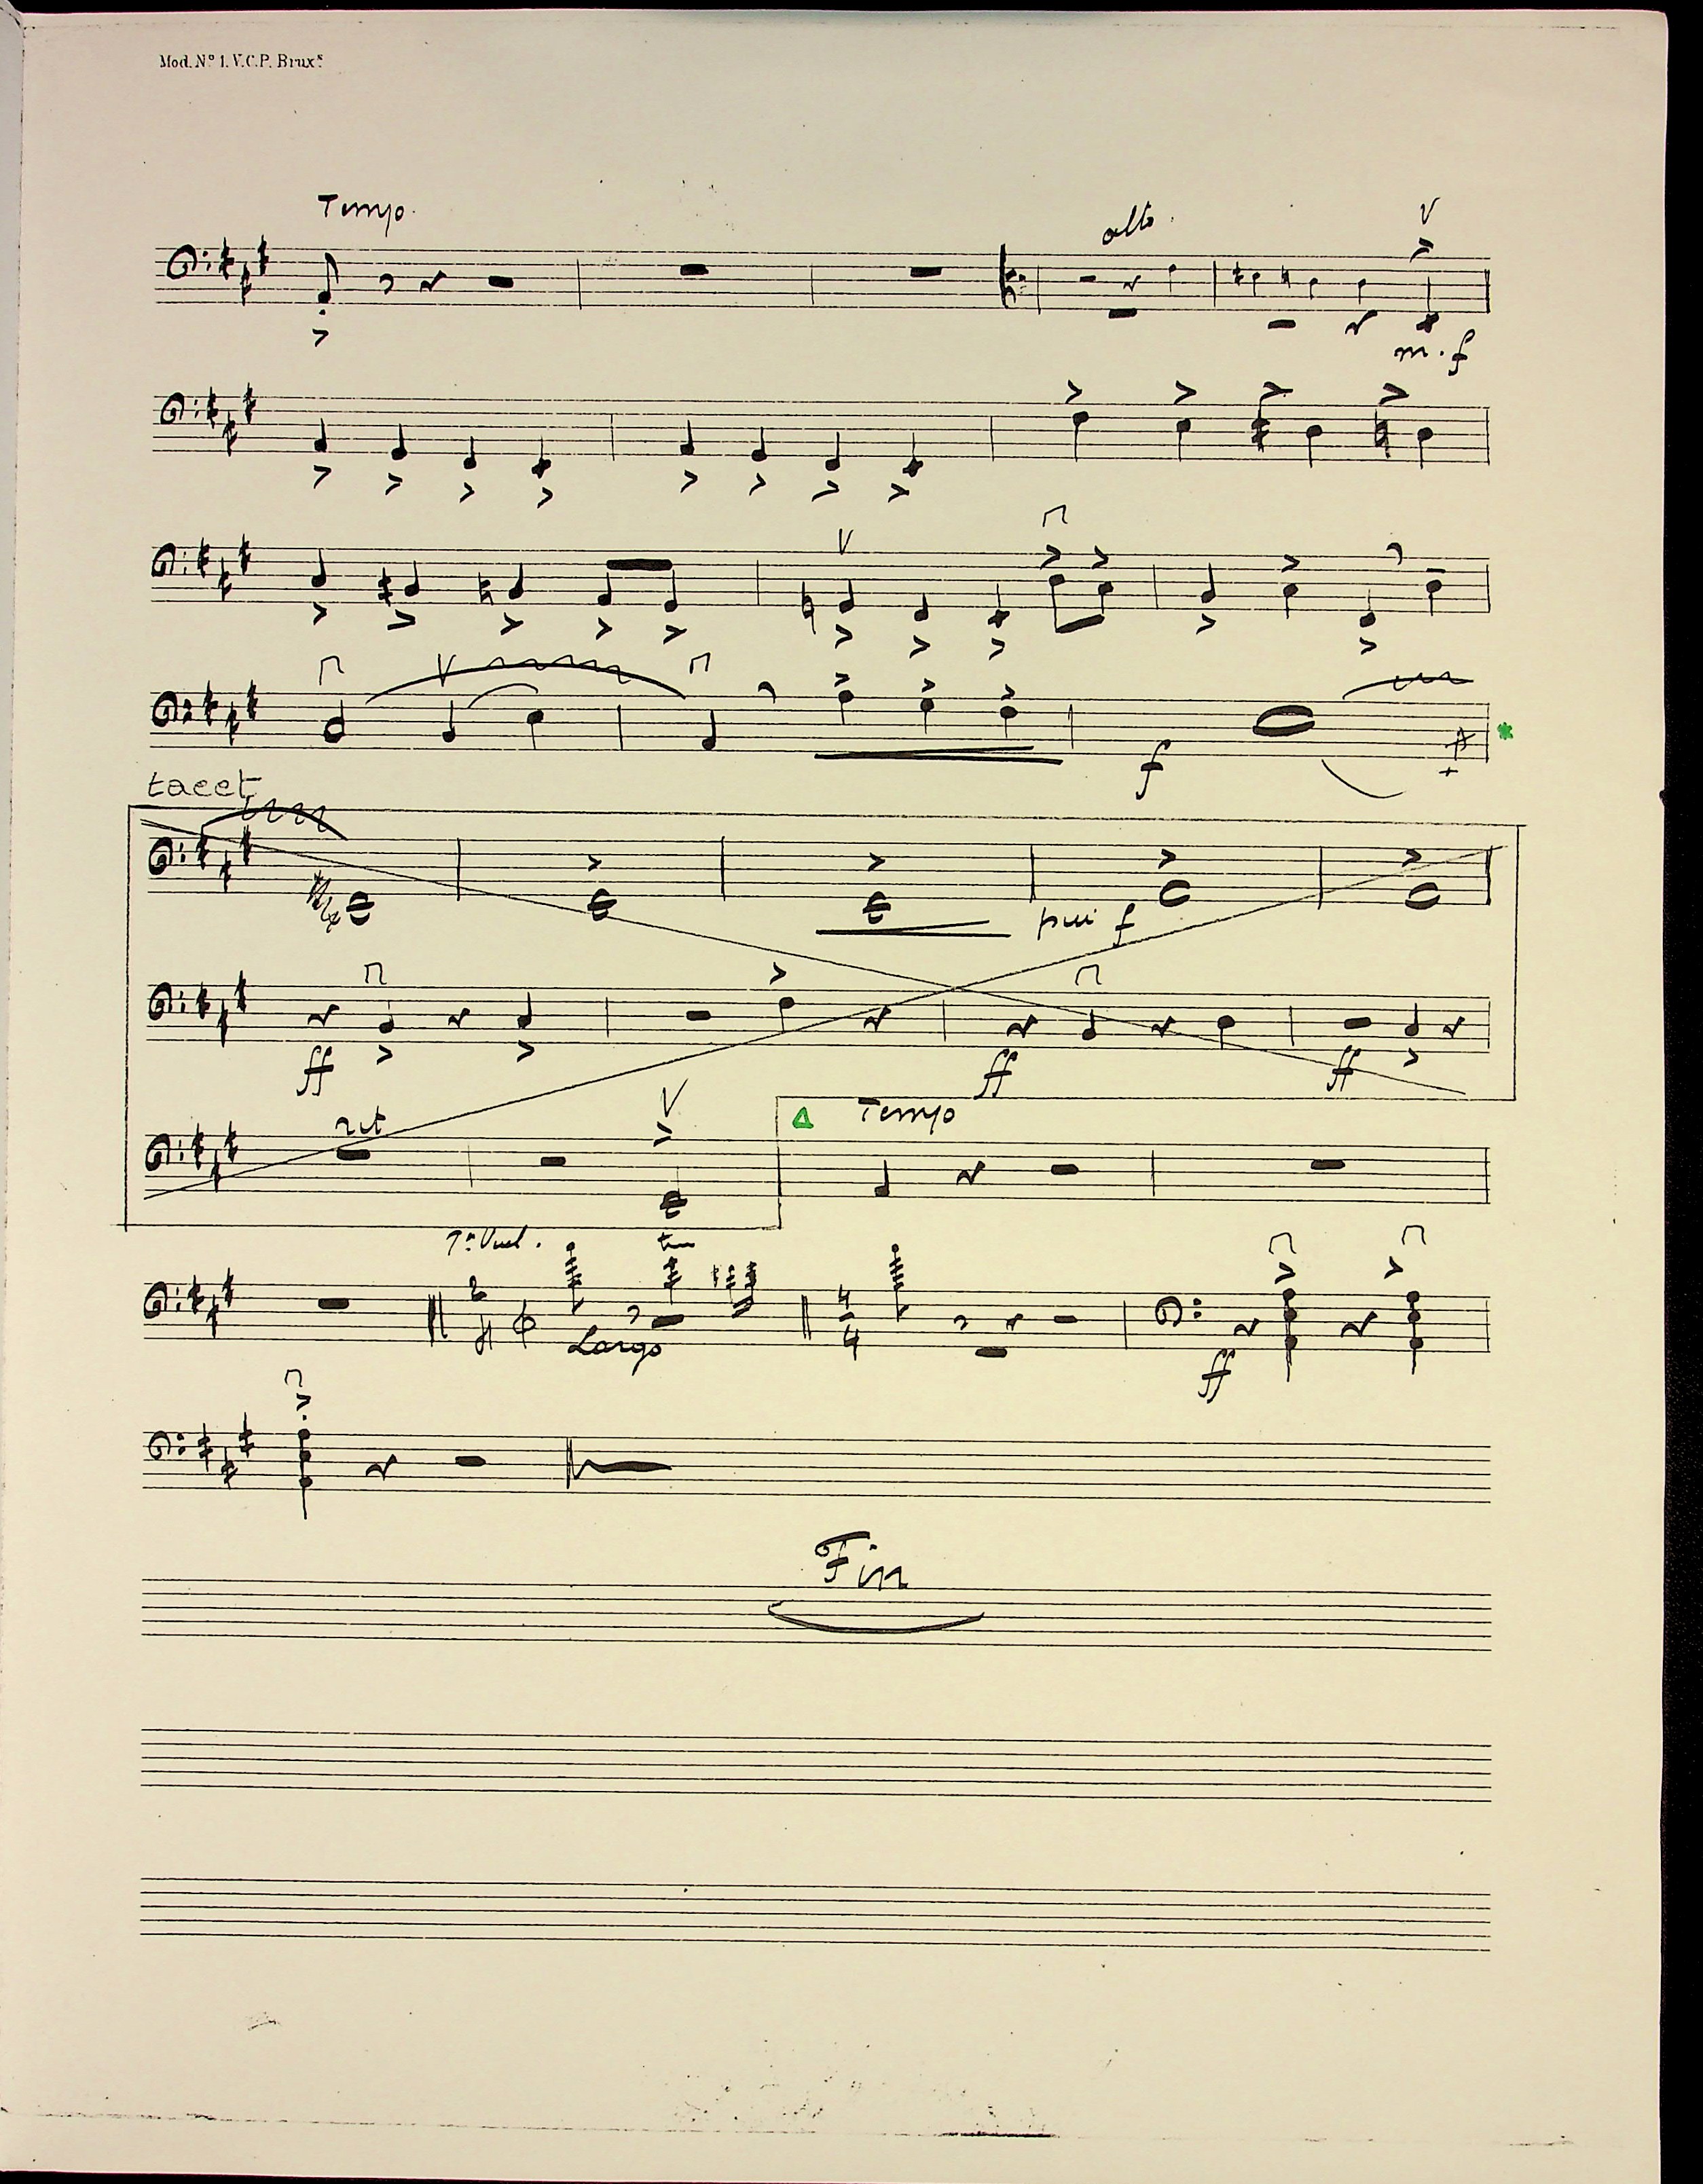 Mod. Nº 1. V.C.P. Brux.
Tempo.
alto.
m.f
f
tacet
piu f
ff
ff
ff
rit
Tempo
1er Viol.
tr
2
4
4
4
Largo
ff
Fin